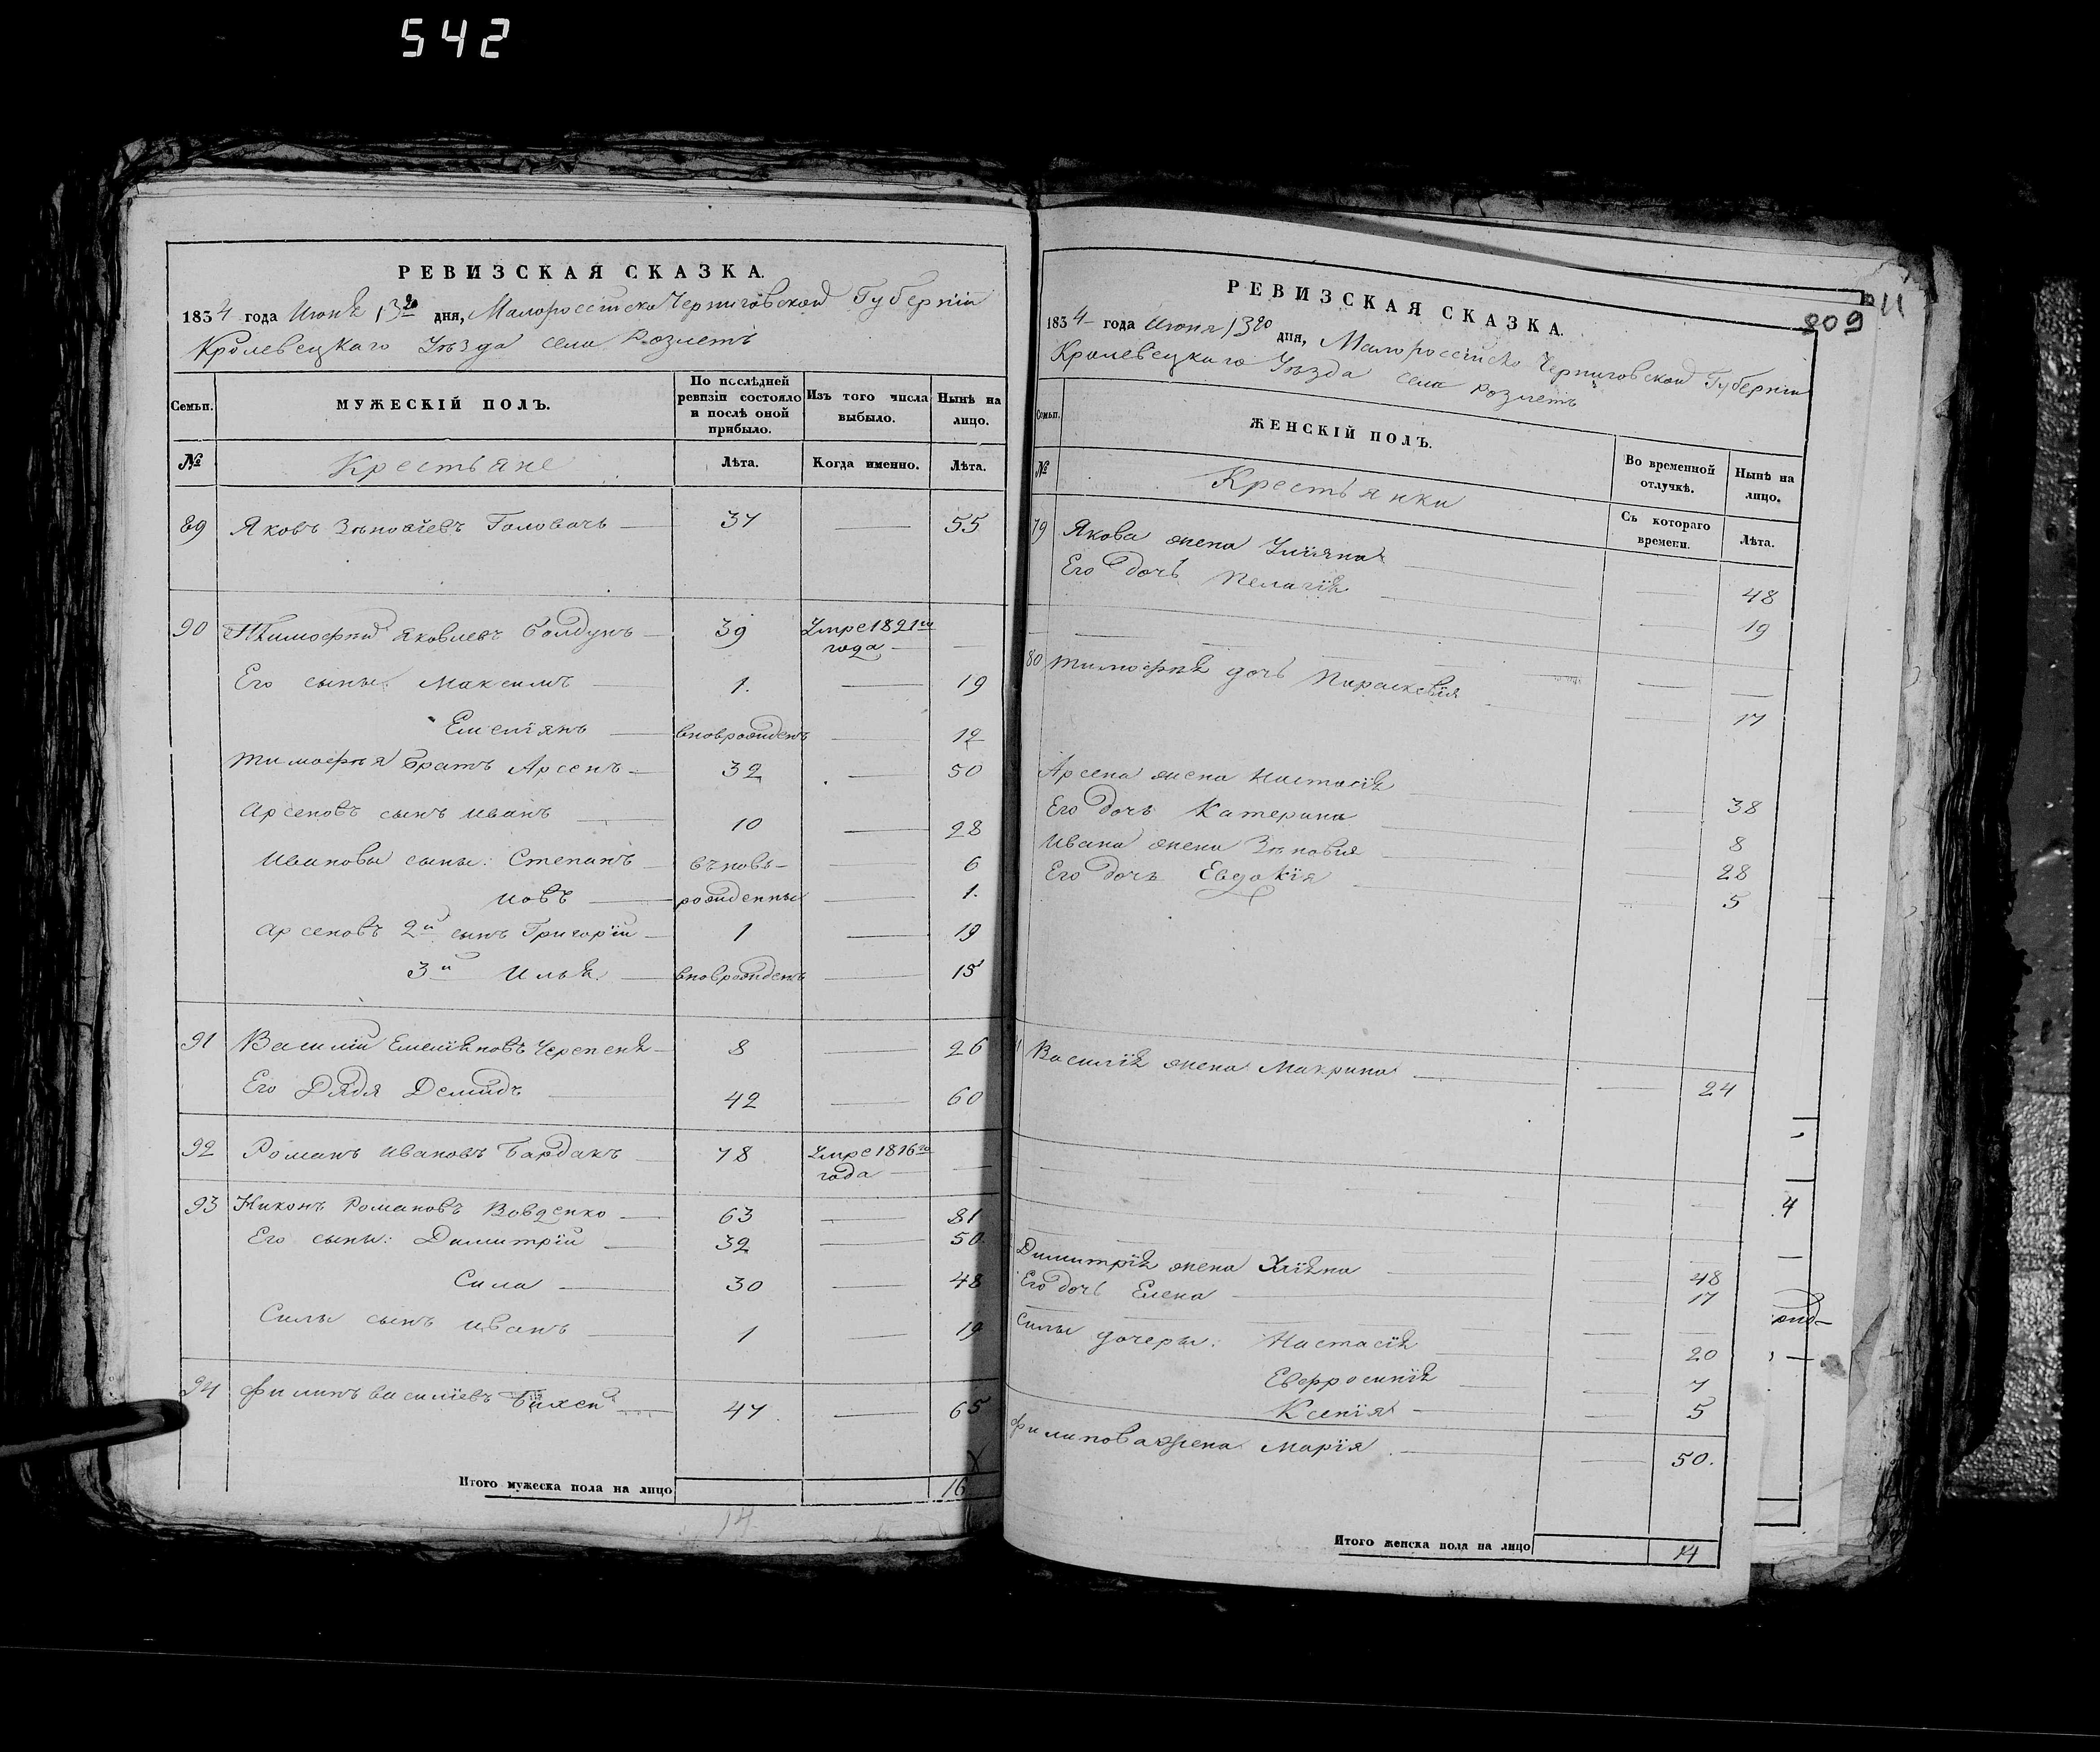 542
РЕВИЗСКАЯ СКАЗКА.
1834 года Июня 13го дня, Малороссійско Черниговской Губерніи
Кролевецкаго Уѣзда села Розлетъ
Семьи.
МУЖЕСКІЙ ПОЛЪ.
По послѣдней ревизіи состояло и послѣ оной прибыло.
Изъ того числа выбыло.
Нынѣ на лицо.
№
Крестьяне
Лѣта.
Когда именно.
Лѣта.
89 Яковъ Зѣновіевъ Головачь — 37 — 55
90 Тимофей Яковлевъ Болдунъ — 39 Умре 1821го года — —
Его сыны: Максимъ — 1. — 19
Емеліянъ — вноврожденъ — 12
Тимофѣя братъ Арсенъ — 32 — 50
Арсеновъ сынъ Иванъ — 10 — 28
Ивановы сыны: Степанъ — въновь- — 6
Иовъ — рожденные — 1.
Арсеновъ 2й сынъ Григорій — 1 — 19
3й Илья — вноврожденъ — 15
91 Василій Емеліяновъ Черепеня — 8 — 26
Его Дядя Демидъ — 42 — 60
92 Романъ Ивановъ Бардакъ — 78 Умре 1816го года — —
93 Никонъ Романовъ Вовденко — 63 — 81
Его сыны: Димитрій — 32 — 50
Сила — 30 — 48
Силы сынъ Иванъ — 1 — 19
94 Филипъ Василіевъ — 47 — 65
Итого мужеска пола на лицо 16
14
РЕВИЗСКАЯ СКАЗКА.
11
209
1834 года Июня 13го дня, Малороссійско Черниговской Губерніи
Кролевецкаго Уѣзда села Розлетъ
Семьи.
ЖЕНСКІЙ ПОЛЪ.
Во временной отлучкѣ.
Нынѣ на лицо.
№
Крестьянки
Съ котораго времени.
Лѣта.
79 Якова жена Уліяна — — 48
Его дочь Пелагія — — 19
80 Тимофѣя дочь Параскевія — — 17
Арсена жена Настасія — 38
Его дочь Катерина — — 8
Ивана жена Зѣновия — — 28
Его дочь Евдокія — — 5
Василія жена Макрина — — 24
4
Димитрія жена Уліяна — 48
Его дочь Елена — 17
Силы дочеры: Настасія — — 20
Евфросинія — — 7
Ксенія — — 5
Филипова жена Марія — — 50.
Итого женска пола на лицо 14